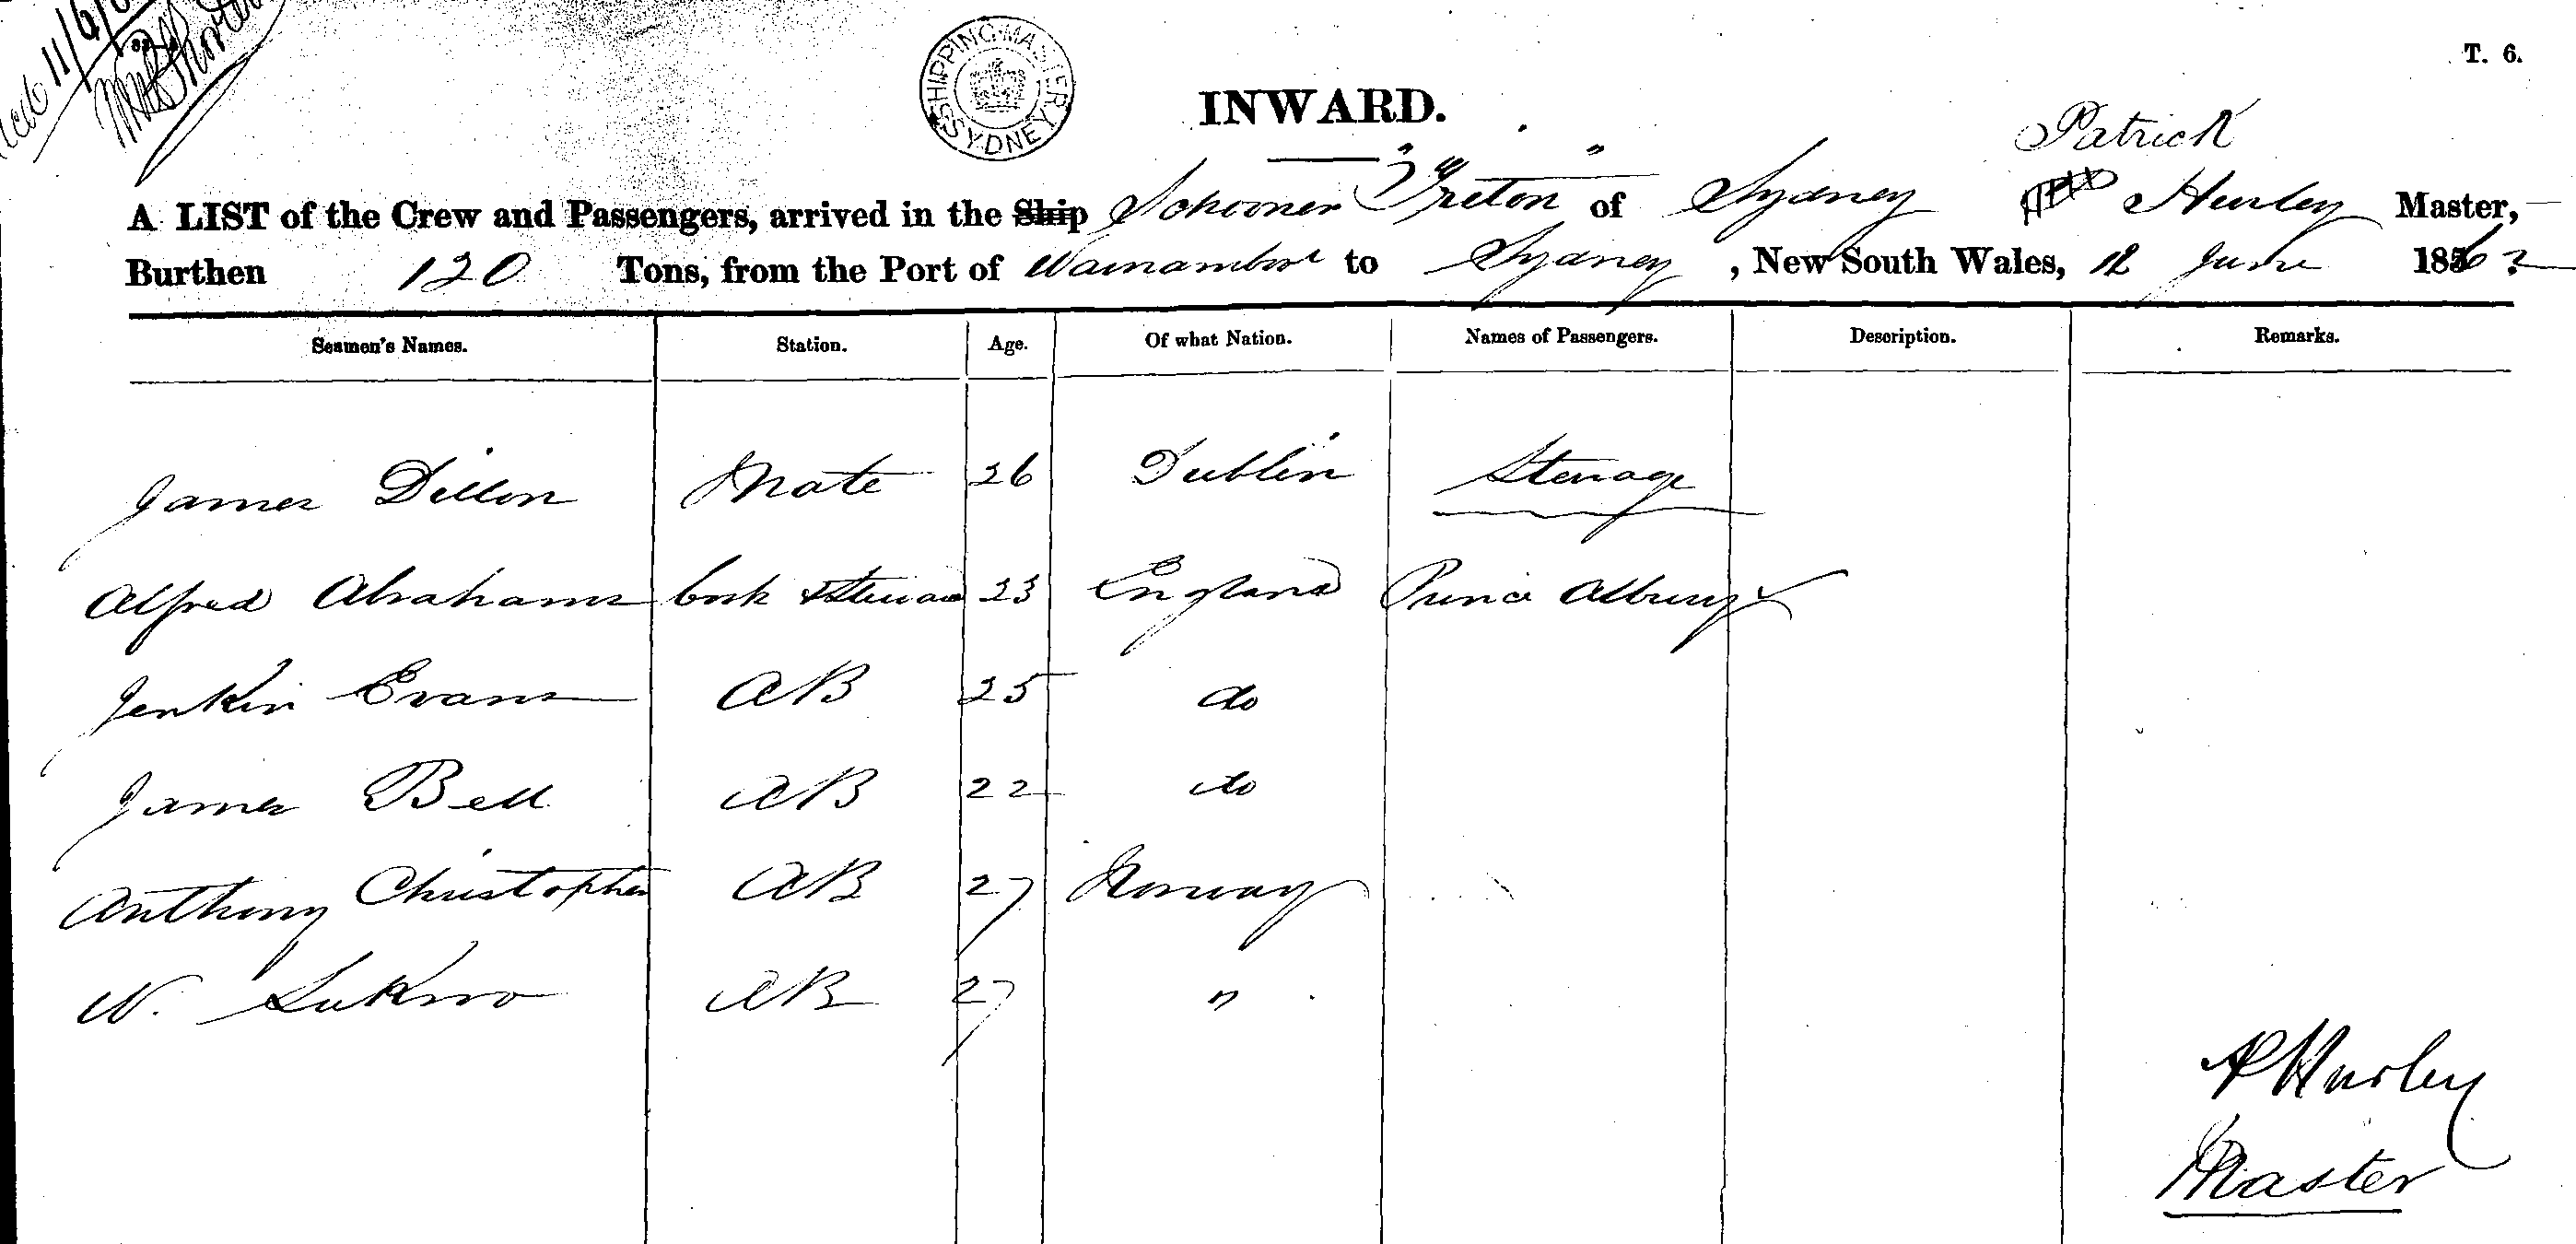 T. 6.
SHIPPING MASTER SYDNEY
INWARD.
Patrick
A LIST of the Crew and Passengers, arrived in the Ship Schooner "Breton" of Sydney Hurley Master,
Burthen 120 Tons, from the Port of Warnambool to Sydney, New South Wales, 12 June 1862.
Seamen's Names. Station. Age. Of what Nation. Names of Passengers. Description. Remarks.
James Dillon Mate 26 Dublin Steerage
Alfred Abrahams Cook & Steward 23 England Albury
Jenkin Evans AB 25 do
James Bell AB 22 do
Anthony Christopher AB 27 Norway
N. AB 27 "
P Hurley
Master